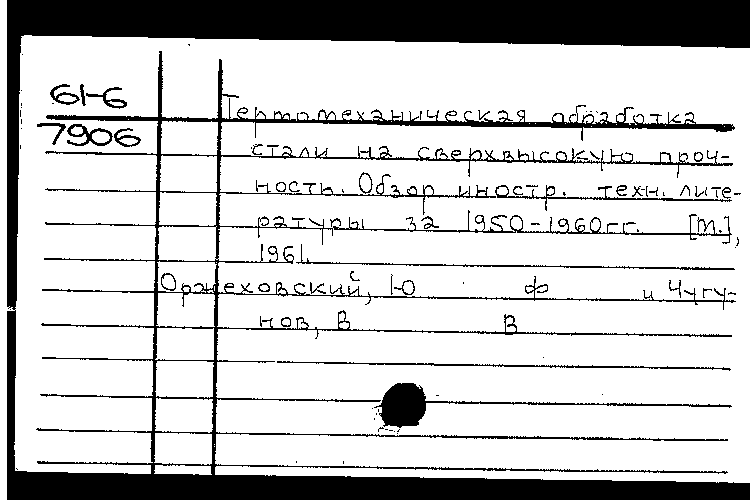 61-6
7906
Термомеханическая обработка
стали на сверхвысокую проч-
ность. Обзор иностр. техн. лите-
ратуры за 1950-1960гг. [М.],
1961.
Оржеховский, Ю Ф и Чугу-
нов, В В